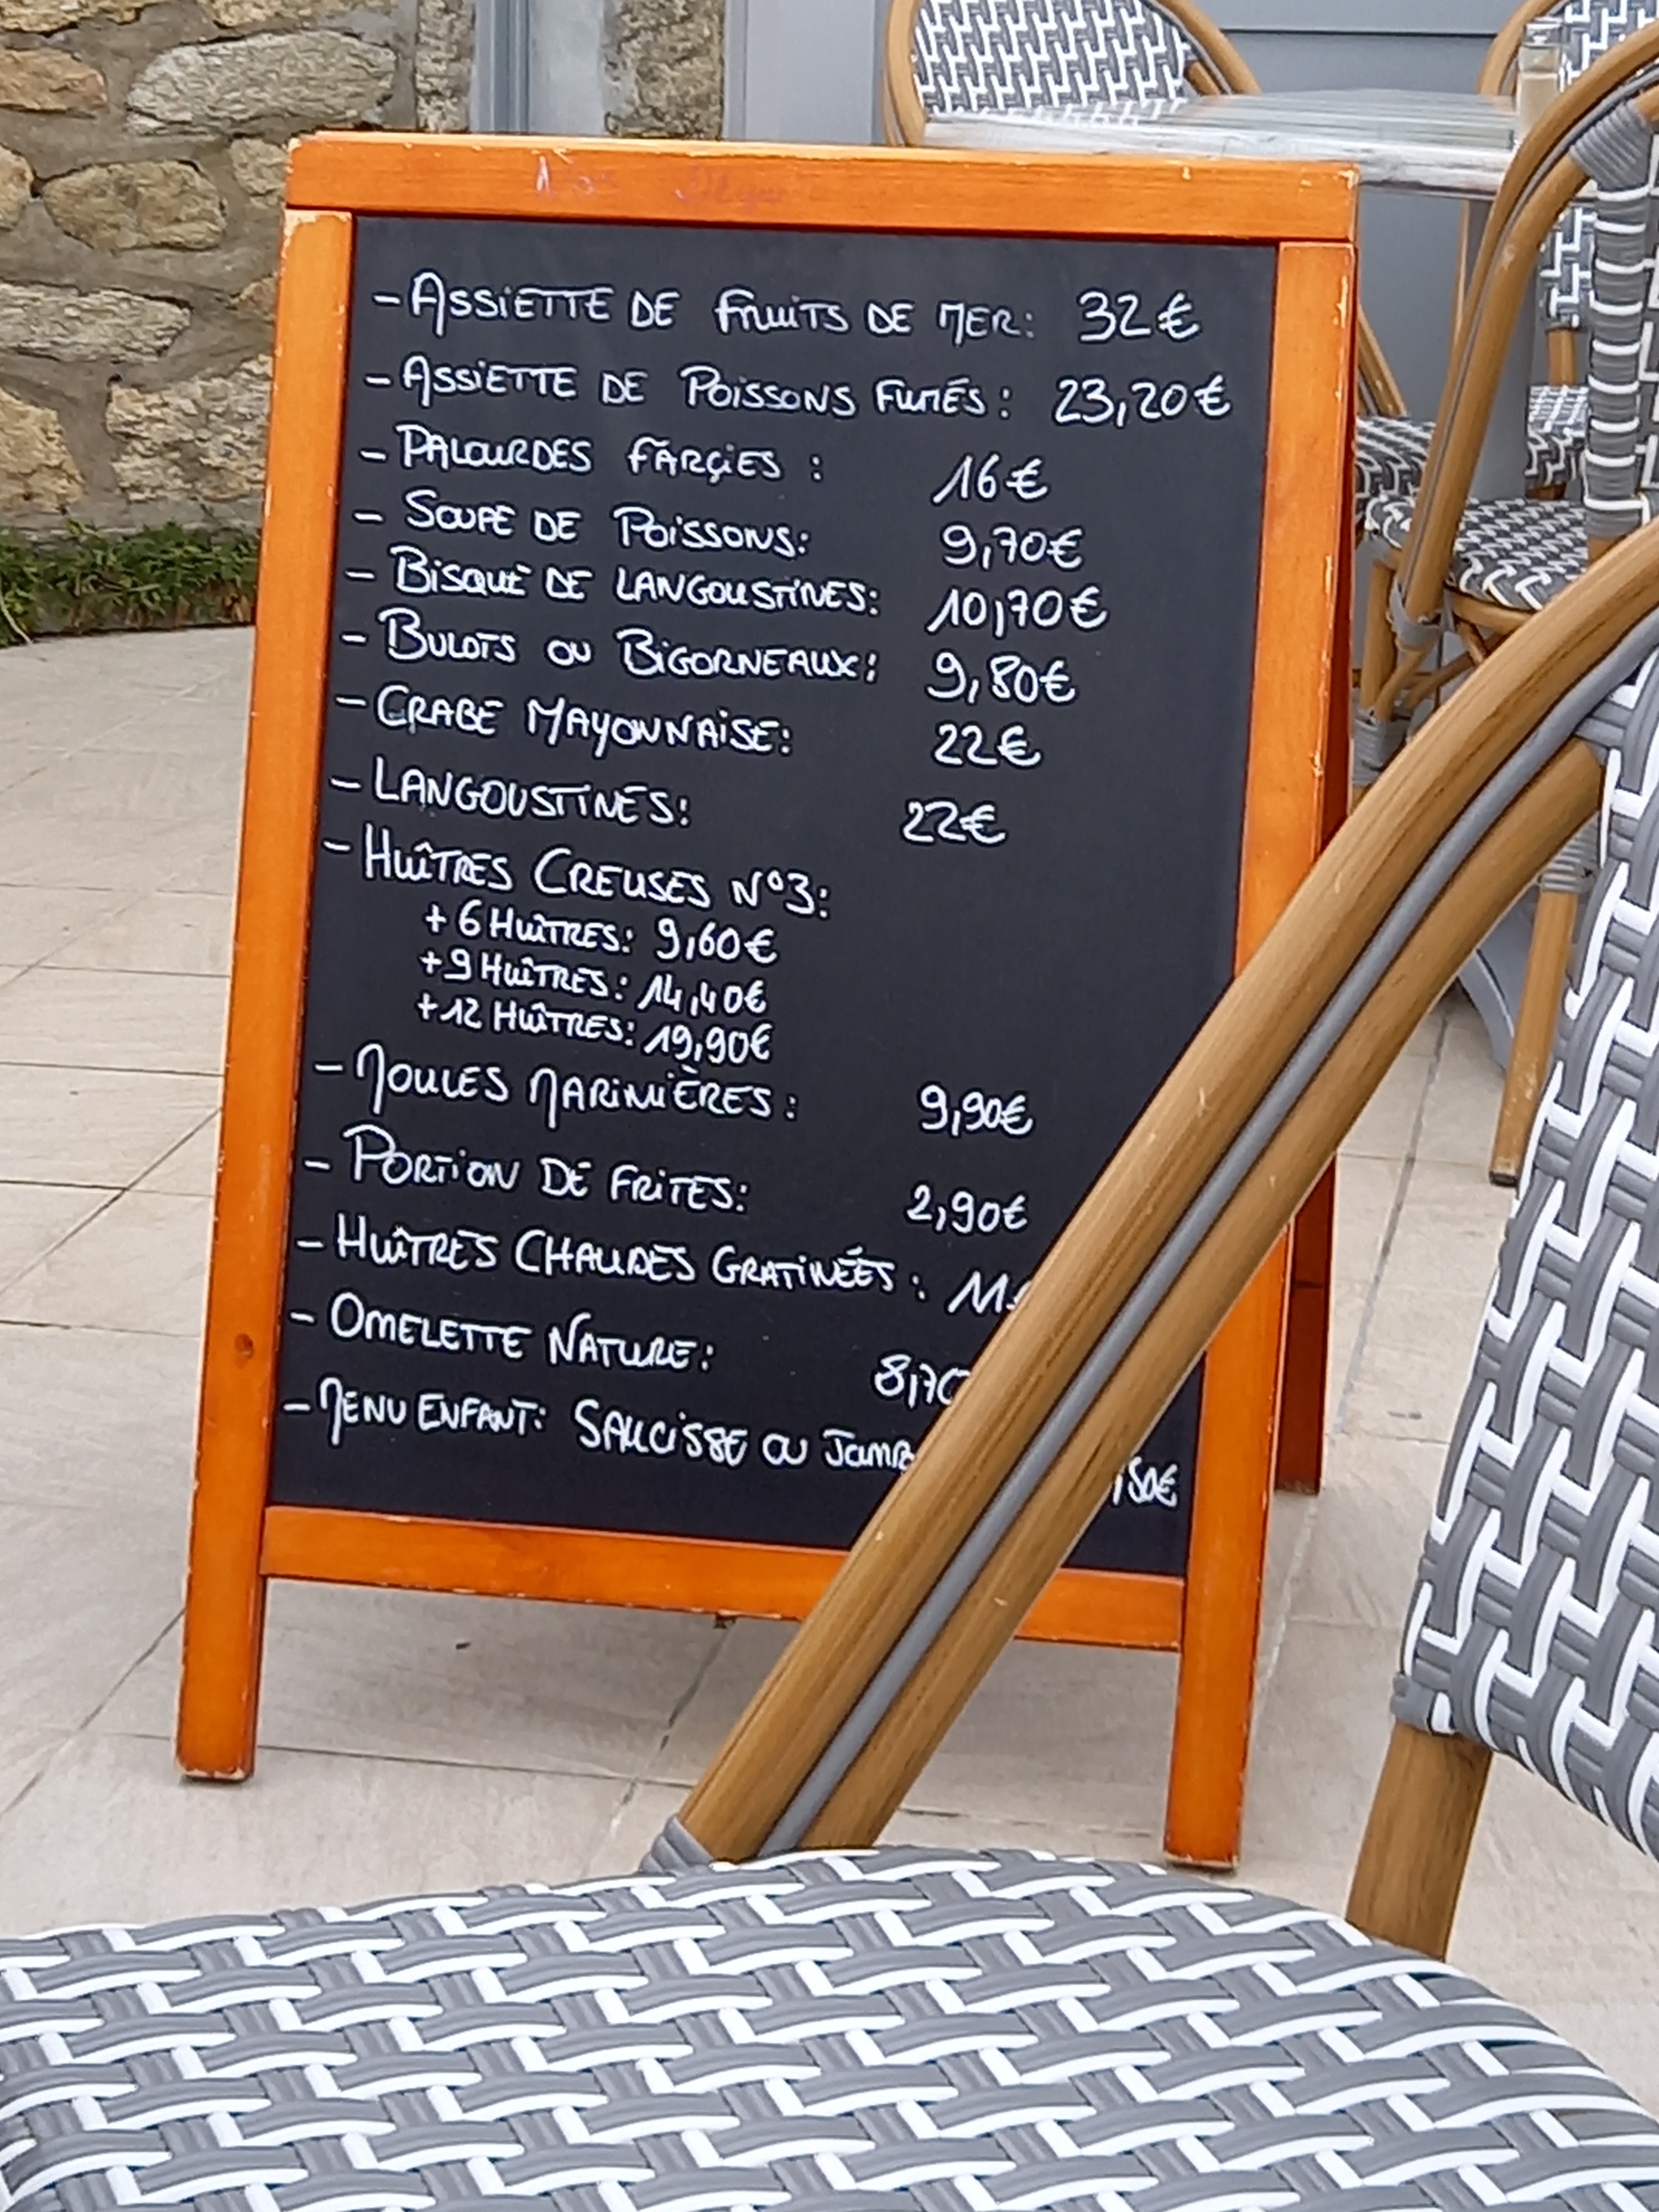 - ASSIETTE DE FRUITS DE MER: 32€
- ASSIETTE DE POISSONS FUMÉS: 23,20€
- PALOURDES FARÇIES : 16€
- SOUPE DE POISSONS: 9,70€
- BISQUE DE LANGOUSTINES: 10,70€
- BULOTS OU BIGORNEAUX: 9,80€
- CRABE MAYONNAISE: 22€
- LANGOUSTINES: 22€
- HUÎTRES CREUSES N°3:
+ 6 HUÎTRES: 9,60€
+ 9 HUÎTRES: 14,40€
+ 12 HUÎTRES: 19,90€
- MOULES MARINIÈRES: 9,90€
- PORTION DE FRITES: 2,90€
- HUÎTRES CHAUDES GRATINÉES :
- OMELETTE NATURE: 8,70
- MENU ENFANT: SAUCISSE OU JAMB ,50€